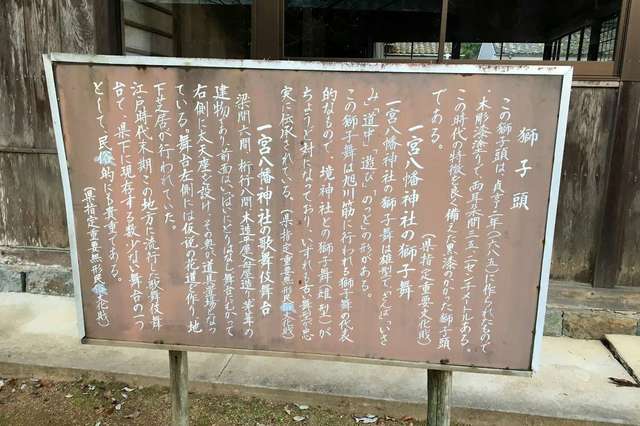 獅子頭
この獅子頭は、貞享二年(一六八五)に作られたもので
木彫漆塗りで、両耳木間二五・二センチメートルある。
この時代の特徴を良く備えた黒漆のかかった獅子頭
である。
(県指定重要文化財)
一宮八幡神社の獅子舞
一宮八幡神社の獅子舞は雄型で、
み」「道中」「遊び」の
の形がある。
この獅子舞は旭川筋に行われる獅子舞の代表
的なもので、境神社との獅子舞(雌型)が
ちょうど対になっており、いずれも古い舞形が忠
実に伝承されている。(県指定重要無形民俗文化財)
一宮八幡神社の歌舞伎舞台
梁間六間、桁行八間、木造平屋入母屋造り、草葺の
建物あり、前面いっぱいにとりはなし舞台に向かって
右側に太夫座を設け、その奥が道具置場となっ
ている。舞台左側には仮設の花道を作り、地
下芝居が行われていた。
江戸時代末期、この地方に流行した歌舞伎舞
台で、県下に現存する数少ない舞台の一つ
として、民俗的にも貴重である。
(県指定重要無形民俗文化財)